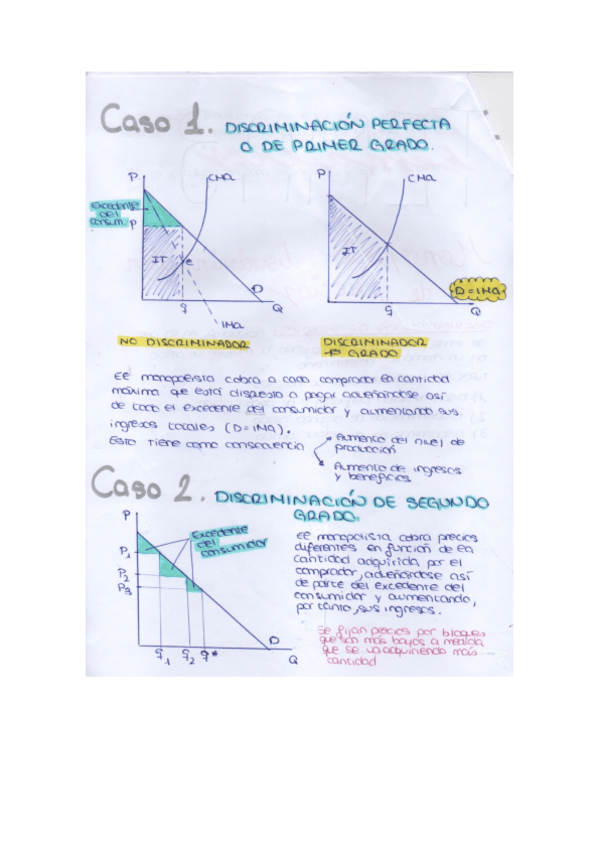 Caso 1. DISCRIMINACIÓN PERFECTA
O DE PRIMER GRADO.
P
CMa
Excedente
del
consum.
P
IT
e
D
q
Q
IMa
NO DISCRIMINADOR
P
CMa
IT
D = IMa
q
Q
DISCRIMINADOR
1º GRADO
El monopolista cobra a cada comprador la cantidad
máxima que está dispuesto a pagar adueñándose así
de todo el excedente del consumidor y aumentando sus
ingresos totales (D=IMa).
Esto tiene como consecuencia
Aumento del nivel de
producción
Aumento de ingresos
y beneficios
Caso 2. DISCRIMINACIÓN DE SEGUNDO
GRADO.
P
Excedente
del
consumidor
P1
P2
P3
D
q1 q2 q*
Q
El monopolista cobra precios
diferentes en función de la
cantidad adquirida por el
comprador, adueñándose así
de parte del excedente del
consumidor y aumentando,
por tanto, sus ingresos.
Se fijan precios por bloques
que son más bajos a medida
que se va adquiriendo más
cantidad